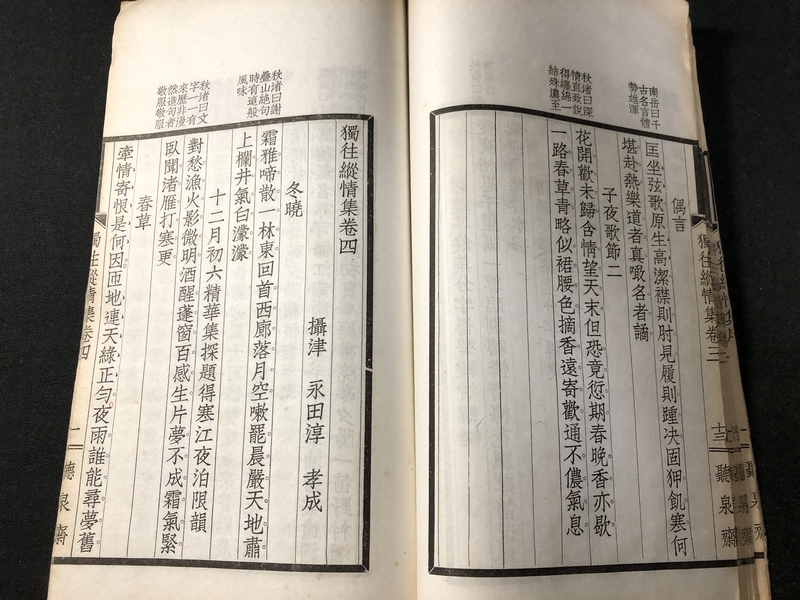 南岳曰千
古名言體
勢雄渾
秋渚曰深
情直致說
得纏綿一
結殊濃至
偶言
匡坐弦歌原生高潔襟則肘見履則踵決固狎飢寒何
堪赴熱樂道者真噉名者譎
子夜歌節二
花開歡未歸含情望天末但恐竟愆期春晚香亦歇
一路春草青略似裙腰色摘香遠寄歡通不儂氣息
獨往縱情集卷三
十三
聽泉齋
秋渚曰謝
疊山絕句
時有這般
風味
秋渚曰文
字一一有
來歷非漫
然造句者
敬服敬服
獨往縱情集卷四
攝津 永田淳 孝成
冬曉
霜雅啼散一林東回首西廊落月空嗽罷晨嚴天地肅
上欄井氣白濛濛
十二月初六精華集探題得寒江夜泊限韻
對愁漁火影微明酒醒蓬窗百感生片夢不成霜氣緊
臥聞渚雁打寒更
春草
牽情寄恨是何因匝地連天綠正勻夜雨誰能尋夢舊
獨往縱情集卷四
一
聽泉齋